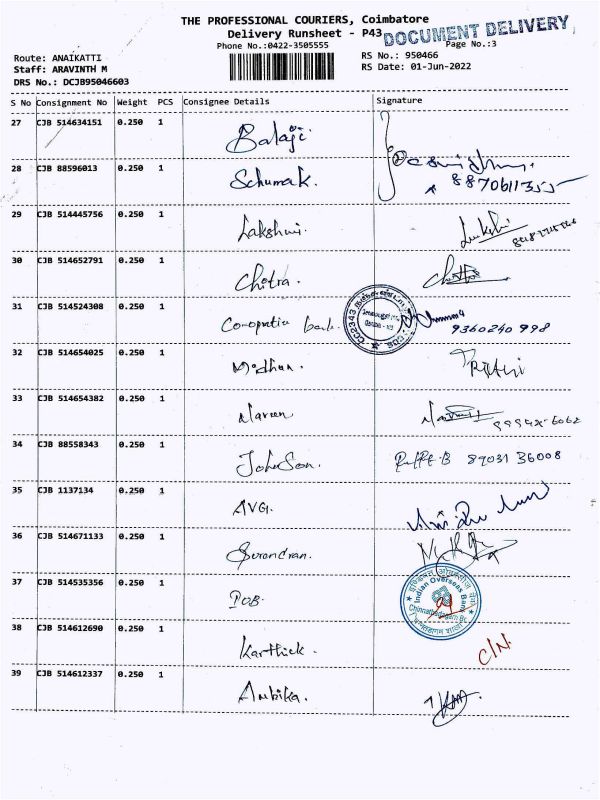 THE PROFESSIONAL COURIERS, Coimbatore
Delivery Runsheet - P43
DOCUMENT DELIVERY
Phone No.:0422-3505555
Page No.:3
Route: ANAIKATTI
RS No.: 950466
Staff: ARAVINTH M
RS Date: 01-Jun-2022
DRS No.: DCJB95046603
S No Consignment No Weight PCS Consignee Details Signature
27 CJB 514634151 0.250 1 Balaji
28 CJB 88596013 0.250 1 Schumak.
8870611355
29 CJB 514445756 0.250 1 Lakshmi.
30 CJB 514652791 0.250 1 Chitra.
31 CJB 514524308 0.250 1 Co-opratie bank
9360240 998
32 CJB 514654025 0.250 1 Madhan.
33 CJB 514654382 0.250 1 Naveen
34 CJB 88558343 0.250 1 JohnSon. 89031 36008
35 CJB 1137134 0.250 1 AVG.
36 CJB 514671133 0.250 1 Surendran.
37 CJB 514535356 0.250 1 IOB. Indian Overseas Bank
38 CJB 514612690 0.250 1 Karthick. C/N.
39 CJB 514612337 0.250 1 Ambika.